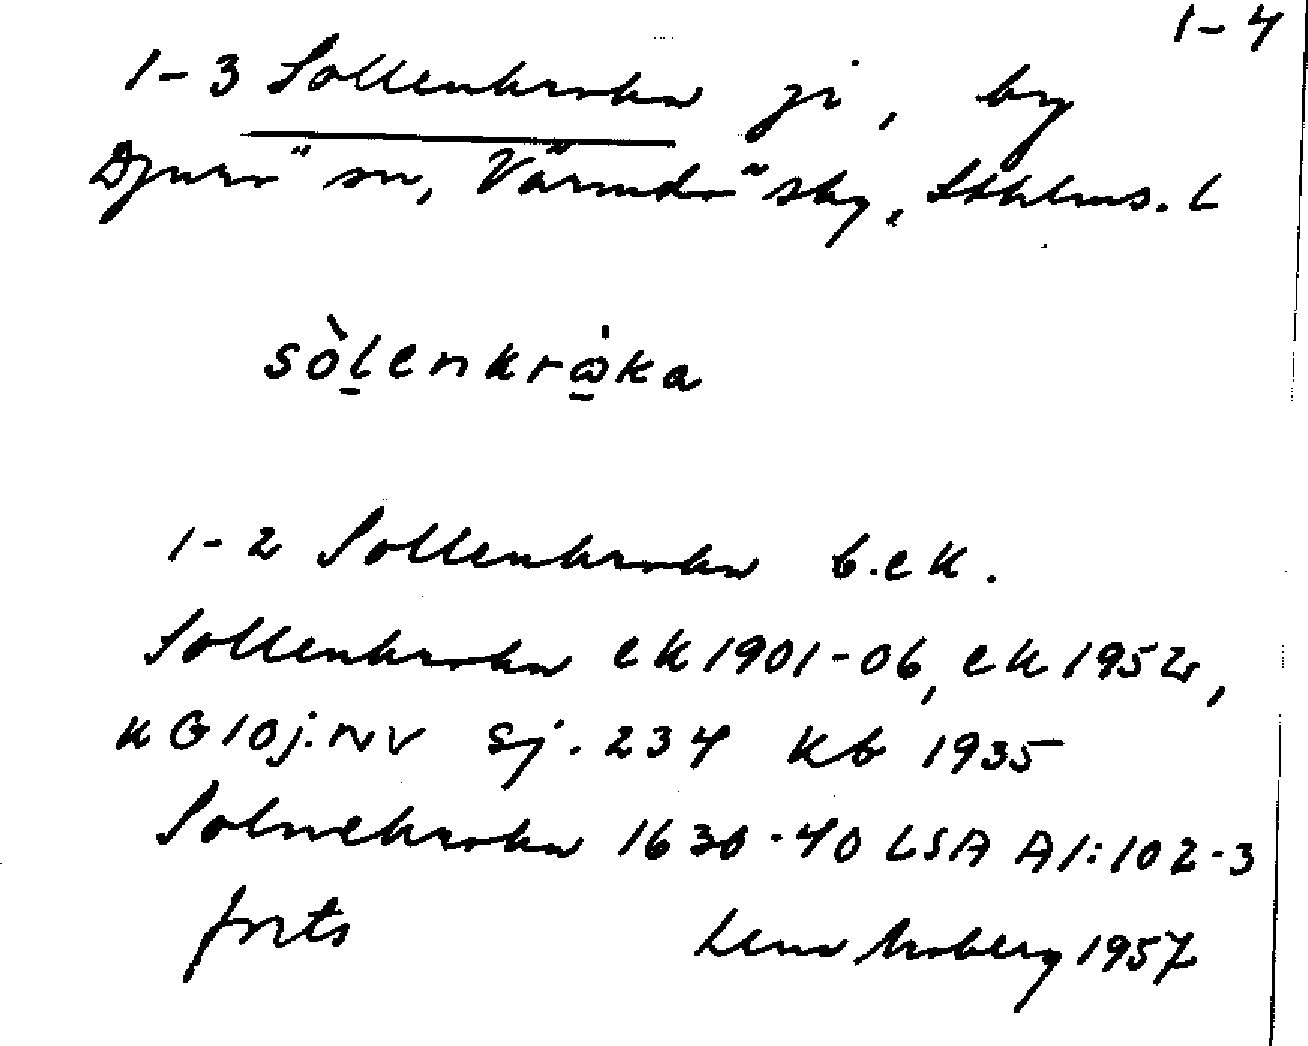 1-4
1-3 Sollenkroka ji, by
Djurö sn, Värmdö skg, Sthlms. L
sòlenkrωka
1-2 Sollenkroka b. ek.
Sollenkroka ek 1901-06, ek 1952,
K G 10 j. NV Sj. 234 Kb 1935
Solnekroka 1630-40 LSA A1:102-3
forts Lena Moberg 1957